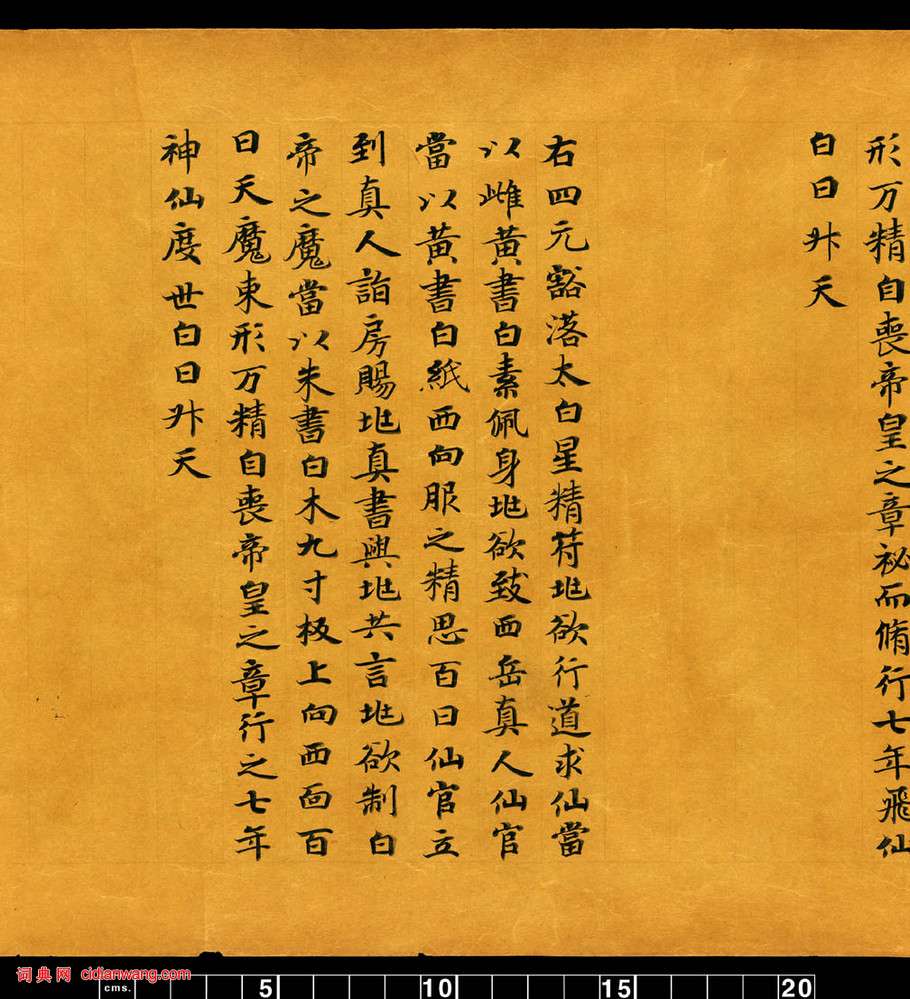 形万精自喪帝皇之章祕而脩行七年飛仙
白日升天
右四元豁落太白星精符地欲行道求仙當
以雌黃書白素佩身地欲致西岳真人仙官
當以黃書白紙西向服之精思百日仙官立
到真人詣房賜地真書與地共言地欲制白
帝之魔當以朱書白木九寸板上向西面百
日天魔束形万精自喪帝皇之章行之七年
神仙度世白日升天
词典网 cidianwang.com
cms. 5 10 15 20